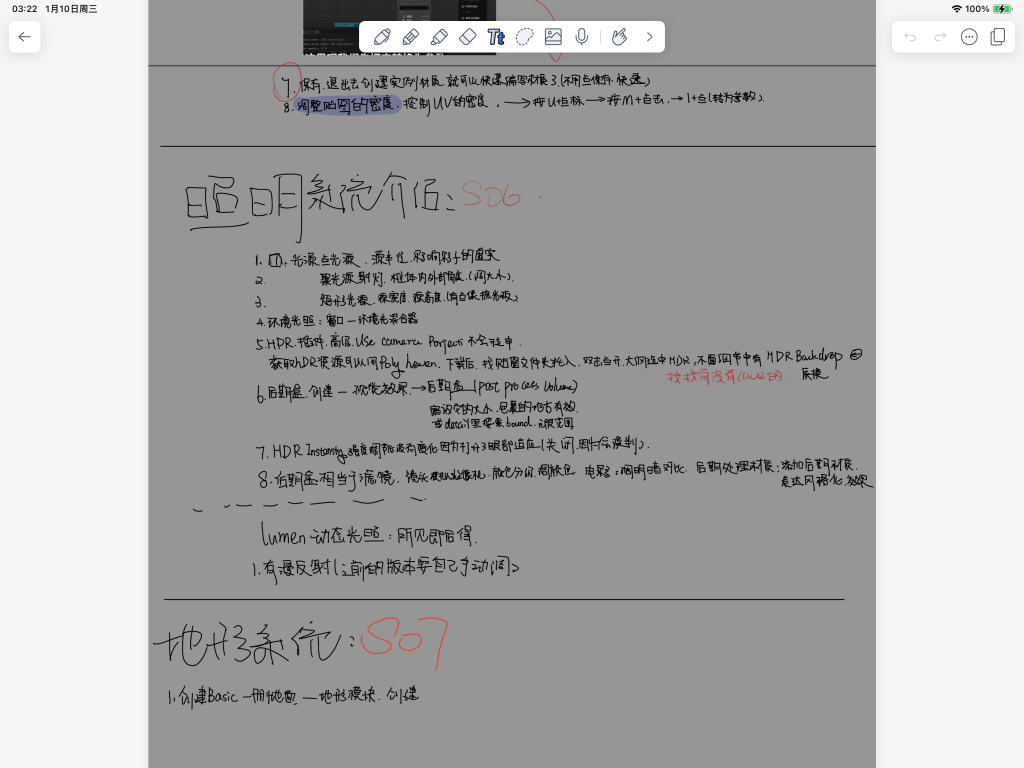 03:22 1月10日周三
100%
Tt
7. 保存.退出去创建实例材质.就可以快速编写材质了(不用点保存.快速)
8. 调整贴图的密度.控制UV的密度. →按U+坐标→按M+点击.→1+点(转为参数).
照明系统介绍: S06.
1. 光源点光源.源半径.影响影子的真实
2. 聚光源射灯.椎体内外部角度.(调大小).
3. 矩形光源.源宽度.源高度.(有点像挡光板)
4. 环境光照:窗口一环境光混合器
5. HDR.插件.高级.Use camera Porject 不会运中.
获取HDR资源可以用Poly haven. 下载后.找贴图文件夹拖入.双击点开.大佬运中HDR,下面细节中有HDR Backdrop
找找有没有cave的. 替换
6. 后期盒.创建一视觉效果.→后期盒(Post process Volume)
盒设定的大小.包裹的地方有效.
或detail里搜索bound.无限范围
7. HDR Instensty.强度调都没有变化因为打开了眼部适应(关闭.因为会误判).
8. 后期盒相当于滤镜. 镜头.散色分离.调颜色. 电影:调明暗对比. 后期处理材质:添加后期材质.
表达风格化.效果
lumen 动态光照:所见即所得.
1. 有漫反射(之前的版本要自己手动调)
地形系统: S07
1. 创建Basic 地形模块.创建